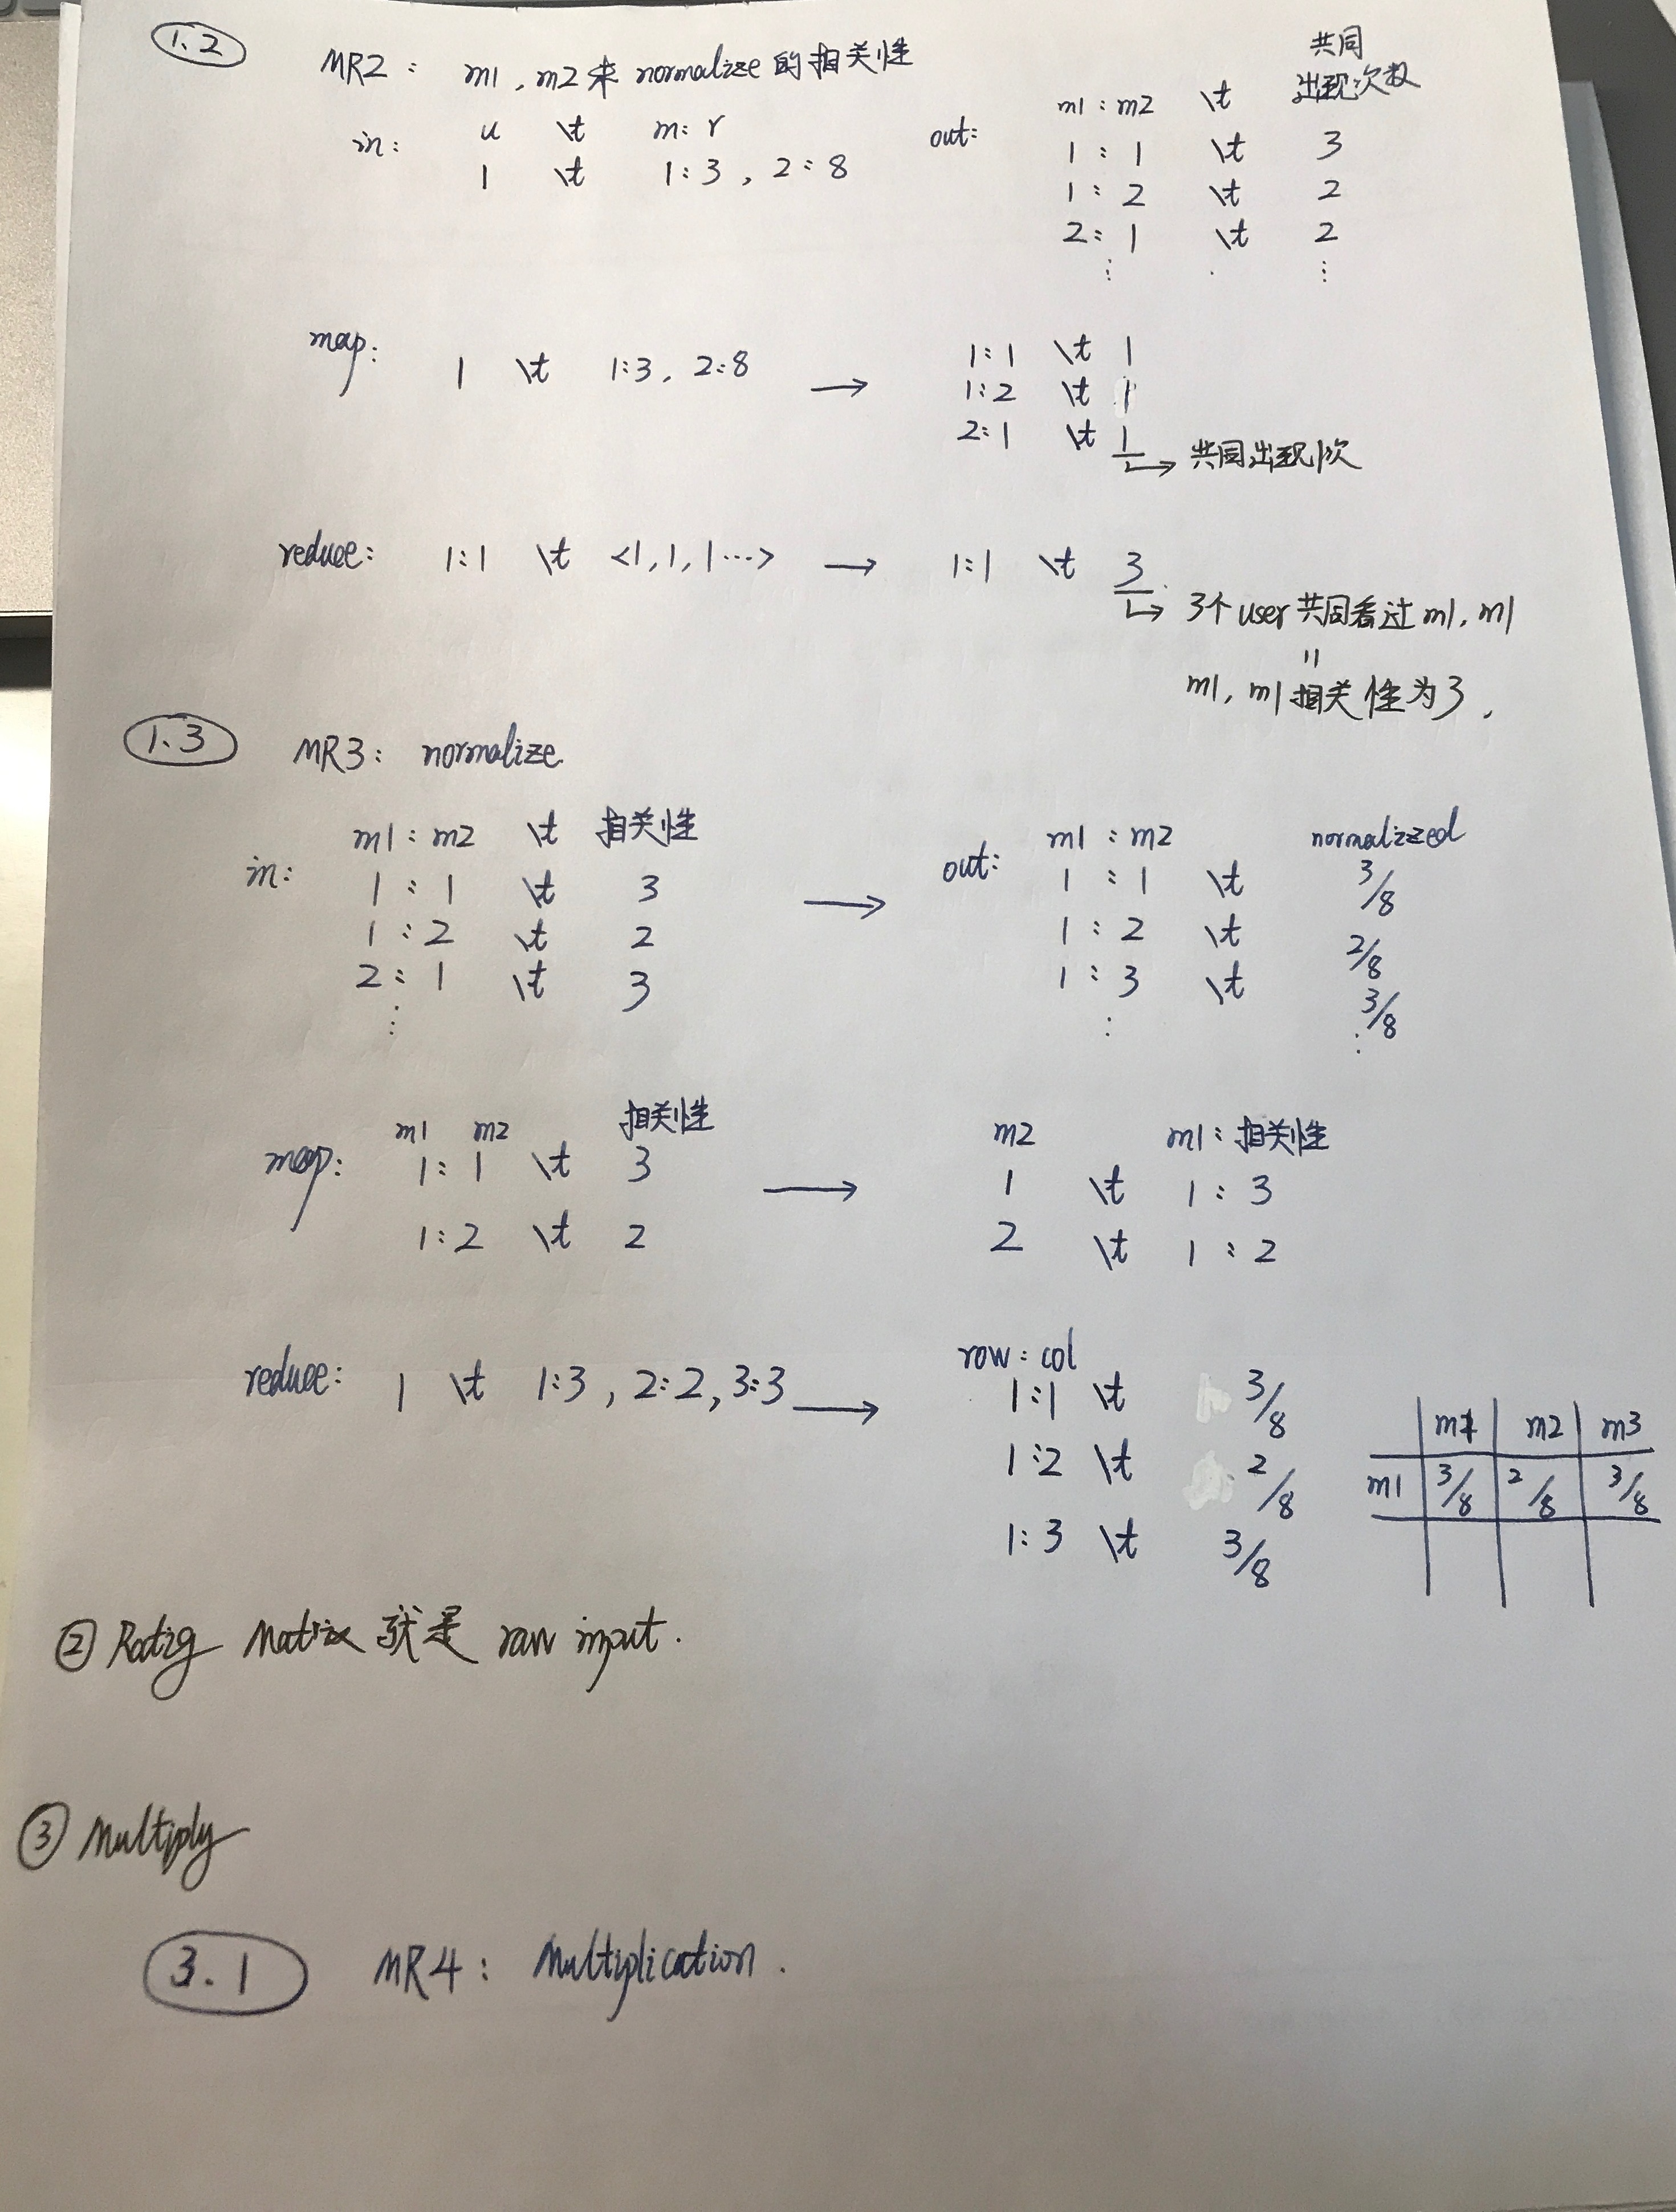 1.2 MR2: m1, m2未 normalize 的相关性
共同
出现次数
in: u \t m: r
1 \t 1:3, 2:8
out: m1:m2 \t
1:1 \t 3
1:2 \t 2
2:1 \t 2
⋮ ⋮
map: 1 \t 1:3, 2:8 → 1:1 \t 1
1:2 \t 1
2:1 \t 1
→ 共同出现1次
reduce: 1:1 \t <1,1,1...> → 1:1 \t 3
→ 3个user共同看过m1, m1
=
m1, m1相关性为3,
1.3 MR3: normalize
in: m1:m2 \t 相关性
1:1 \t 3
1:2 \t 2
2:1 \t 3
⋮
→
out: m1:m2 normalizzed
1:1 \t 3/8
1:2 \t 2/8
1:3 \t 3/8
⋮ ⋮
map: m1 m2 相关性
1:1 \t 3
1:2 \t 2
→
m2 m1:相关性
1 \t 1:3
2 \t 1:2
reduce: 1 \t 1:3, 2:2, 3:3 →
row:col
1:1 \t 3/8
1:2 \t 2/8
1:3 \t 3/8
m1 m2 m3
m1 3/8 2/8 3/8
② Ratig Matrix 就是 raw input.
③ Multiply
3.1 MR4: Multiplication.